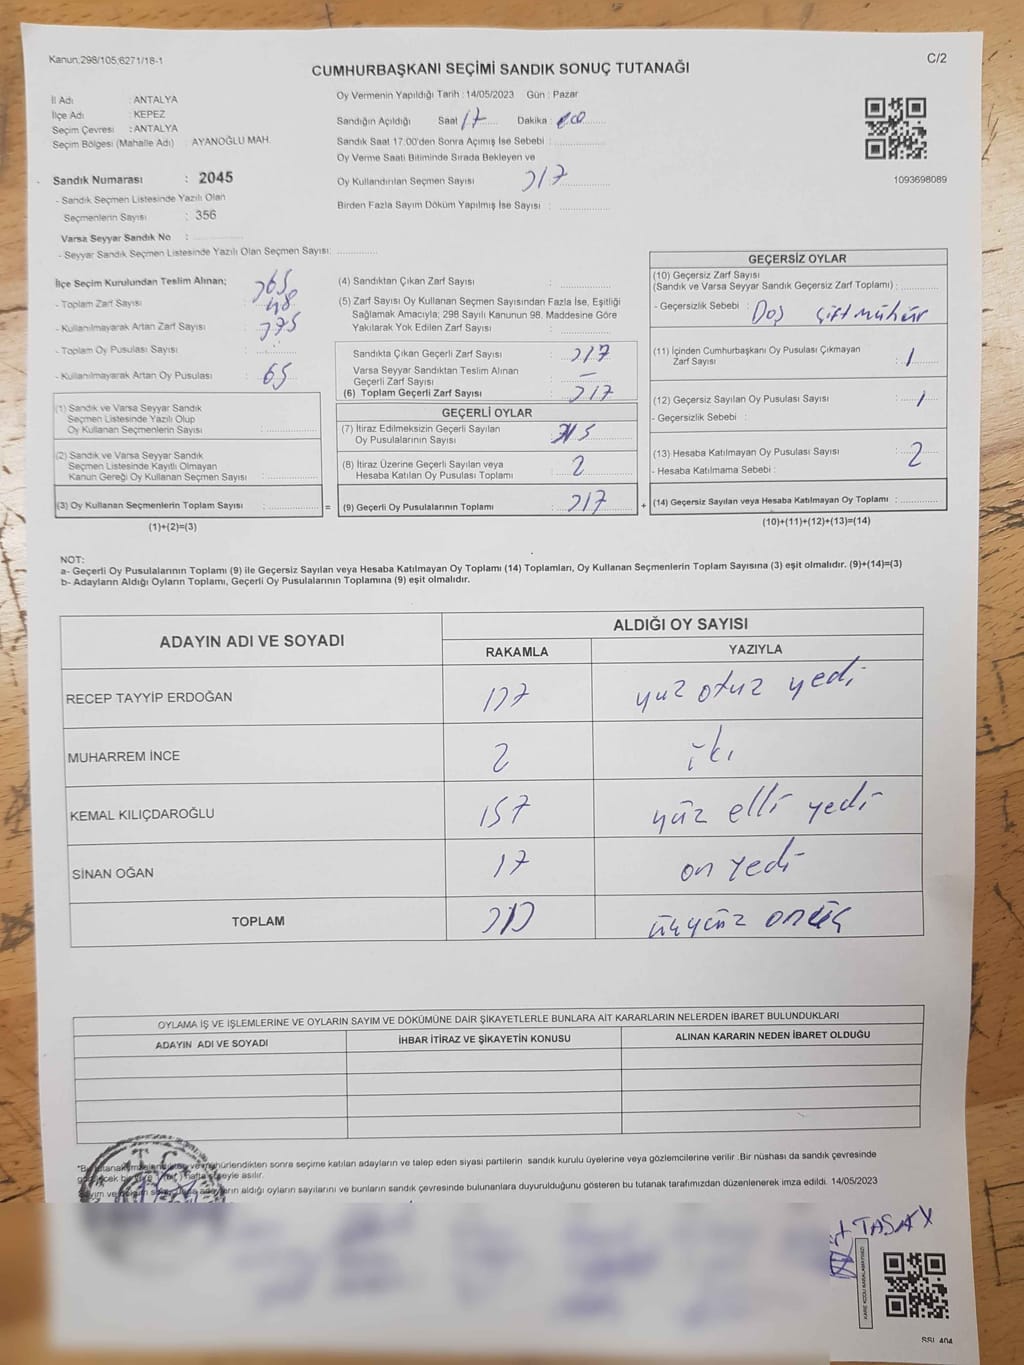 Kanun:298/105;6271/18-1
C/2
CUMHURBAŞKANI SEÇİMİ SANDIK SONUÇ TUTANAĞI
İl Adı : ANTALYA
İlçe Adı : KEPEZ
Seçim Çevresi : ANTALYA
Seçim Bölgesi (Mahalle Adı) : AYANOĞLU MAH.
Sandık Numarası : 2045
- Sandık Seçmen Listesinde Yazılı Olan
Seçmenlerin Sayısı : 356
Varsa Seyyar Sandık No :
- Seyyar Sandık Seçmen Listesinde Yazılı Olan Seçmen Sayısı:
Oy Vermenin Yapıldığı Tarih : 14/05/2023 Gün : Pazar
Sandığın Açıldığı Saat 17 Dakika : 00
Sandık Saat 17:00'den Sonra Açımış İse Sebebi :
Oy Verme Saati Bitiminde Sırada Bekleyen ve
Oy Kullandırılan Seçmen Sayısı 317
Birden Fazla Sayım Döküm Yapılmış İse Sayısı :
1093698089
İlçe Seçim Kurulundan Teslim Alınan;
- Toplam Zarf Sayısı : 365
- Kullanılmayarak Artan Zarf Sayısı : 48
- Toplam Oy Pusulası Sayısı : 375
- Kullanılmayarak Artan Oy Pusulası : 65
(1) Sandık ve Varsa Seyyar Sandık
Seçmen Listesinde Yazılı Olup
Oy Kullanan Seçmenlerin Sayısı :
(2) Sandık ve Varsa Seyyar Sandık
Seçmen Listesinde Kayıtlı Olmayan
Kanun Gereği Oy Kullanan Seçmen Sayısı :
(3) Oy Kullanan Seçmenlerin Toplam Sayısı : =
(1)+(2)=(3)
(4) Sandıktan Çıkan Zarf Sayısı :
(5) Zarf Sayısı Oy Kullanan Seçmen Sayısından Fazla İse, Eşitliği
Sağlamak Amacıyla; 298 Sayılı Kanunun 98. Maddesine Göre
Yakılarak Yok Edilen Zarf Sayısı :
Sandıkta Çıkan Geçerli Zarf Sayısı : 317
Varsa Seyyar Sandıktan Teslim Alınan
Geçerli Zarf Sayısı : –
(6) Toplam Geçerli Zarf Sayısı : 317
GEÇERLİ OYLAR
(7) İtiraz Edilmeksizin Geçerli Sayılan
Oy Pusulalarının Sayısı : 315
(8) İtiraz Üzerine Geçerli Sayılan veya
Hesaba Katılan Oy Pusulası Toplamı : 2
(9) Geçerli Oy Pusulalarının Toplamı : 317 +
GEÇERSİZ OYLAR
(10) Geçersiz Zarf Sayısı
(Sandık ve Varsa Seyyar Sandık Geçersiz Zarf Toplamı) :
- Geçersizlik Sebebi : Boş çift mühür
(11) İçinden Cumhurbaşkanı Oy Pusulası Çıkmayan
Zarf Sayısı : 1
(12) Geçersiz Sayılan Oy Pusulası Sayısı : 1
- Geçersizlik Sebebi :
(13) Hesaba Katılmayan Oy Pusulası Sayısı : 2
- Hesaba Katılmama Sebebi :
(14) Geçersiz Sayılan veya Hesaba Katılmayan Oy Toplamı :
(10)+(11)+(12)+(13)=(14)
NOT:
a- Geçerli Oy Pusulalarının Toplamı (9) ile Geçersiz Sayılan veya Hesaba Katılmayan Oy Toplamı (14) Toplamları, Oy Kullanan Seçmenlerin Toplam Sayısına (3) eşit olmalıdır. (9)+(14)=(3)
b- Adayların Aldığı Oyların Toplamı, Geçerli Oy Pusulalarının Toplamına (9) eşit olmalıdır.
ADAYIN ADI VE SOYADI ALDIĞI OY SAYISI
RAKAMLA YAZIYLA
RECEP TAYYİP ERDOĞAN 137 yüz otuz yedi
MUHARREM İNCE 2 iki
KEMAL KILIÇDAROĞLU 157 yüz elli yedi
SİNAN OĞAN 17 on yedi
TOPLAM 313 üçyüz onüç
OYLAMA İŞ VE İŞLEMLERİNE VE OYLARIN SAYIM VE DÖKÜMÜNE DAİR ŞİKAYETLERLE BUNLARA AİT KARARLARIN NELERDEN İBARET BULUNDUKLARI
ADAYIN ADI VE SOYADI İHBAR İTİRAZ VE ŞİKAYETİN KONUSU ALINAN KARARIN NEDEN İBARET OLDUĞU
sonra seçime katılan adayların ve talep eden siyasi partilerin sandık kurulu üyelerine veya gözlemcilerine verilir .Bir nüshası da sandık çevresinde
süreyle asılır.
aldığı oyların sayılarını ve bunların sandık çevresinde bulunanlara duyurulduğunu gösteren bu tutanak tarafımızdan düzenlenerek imza edildi. 14/05/2023